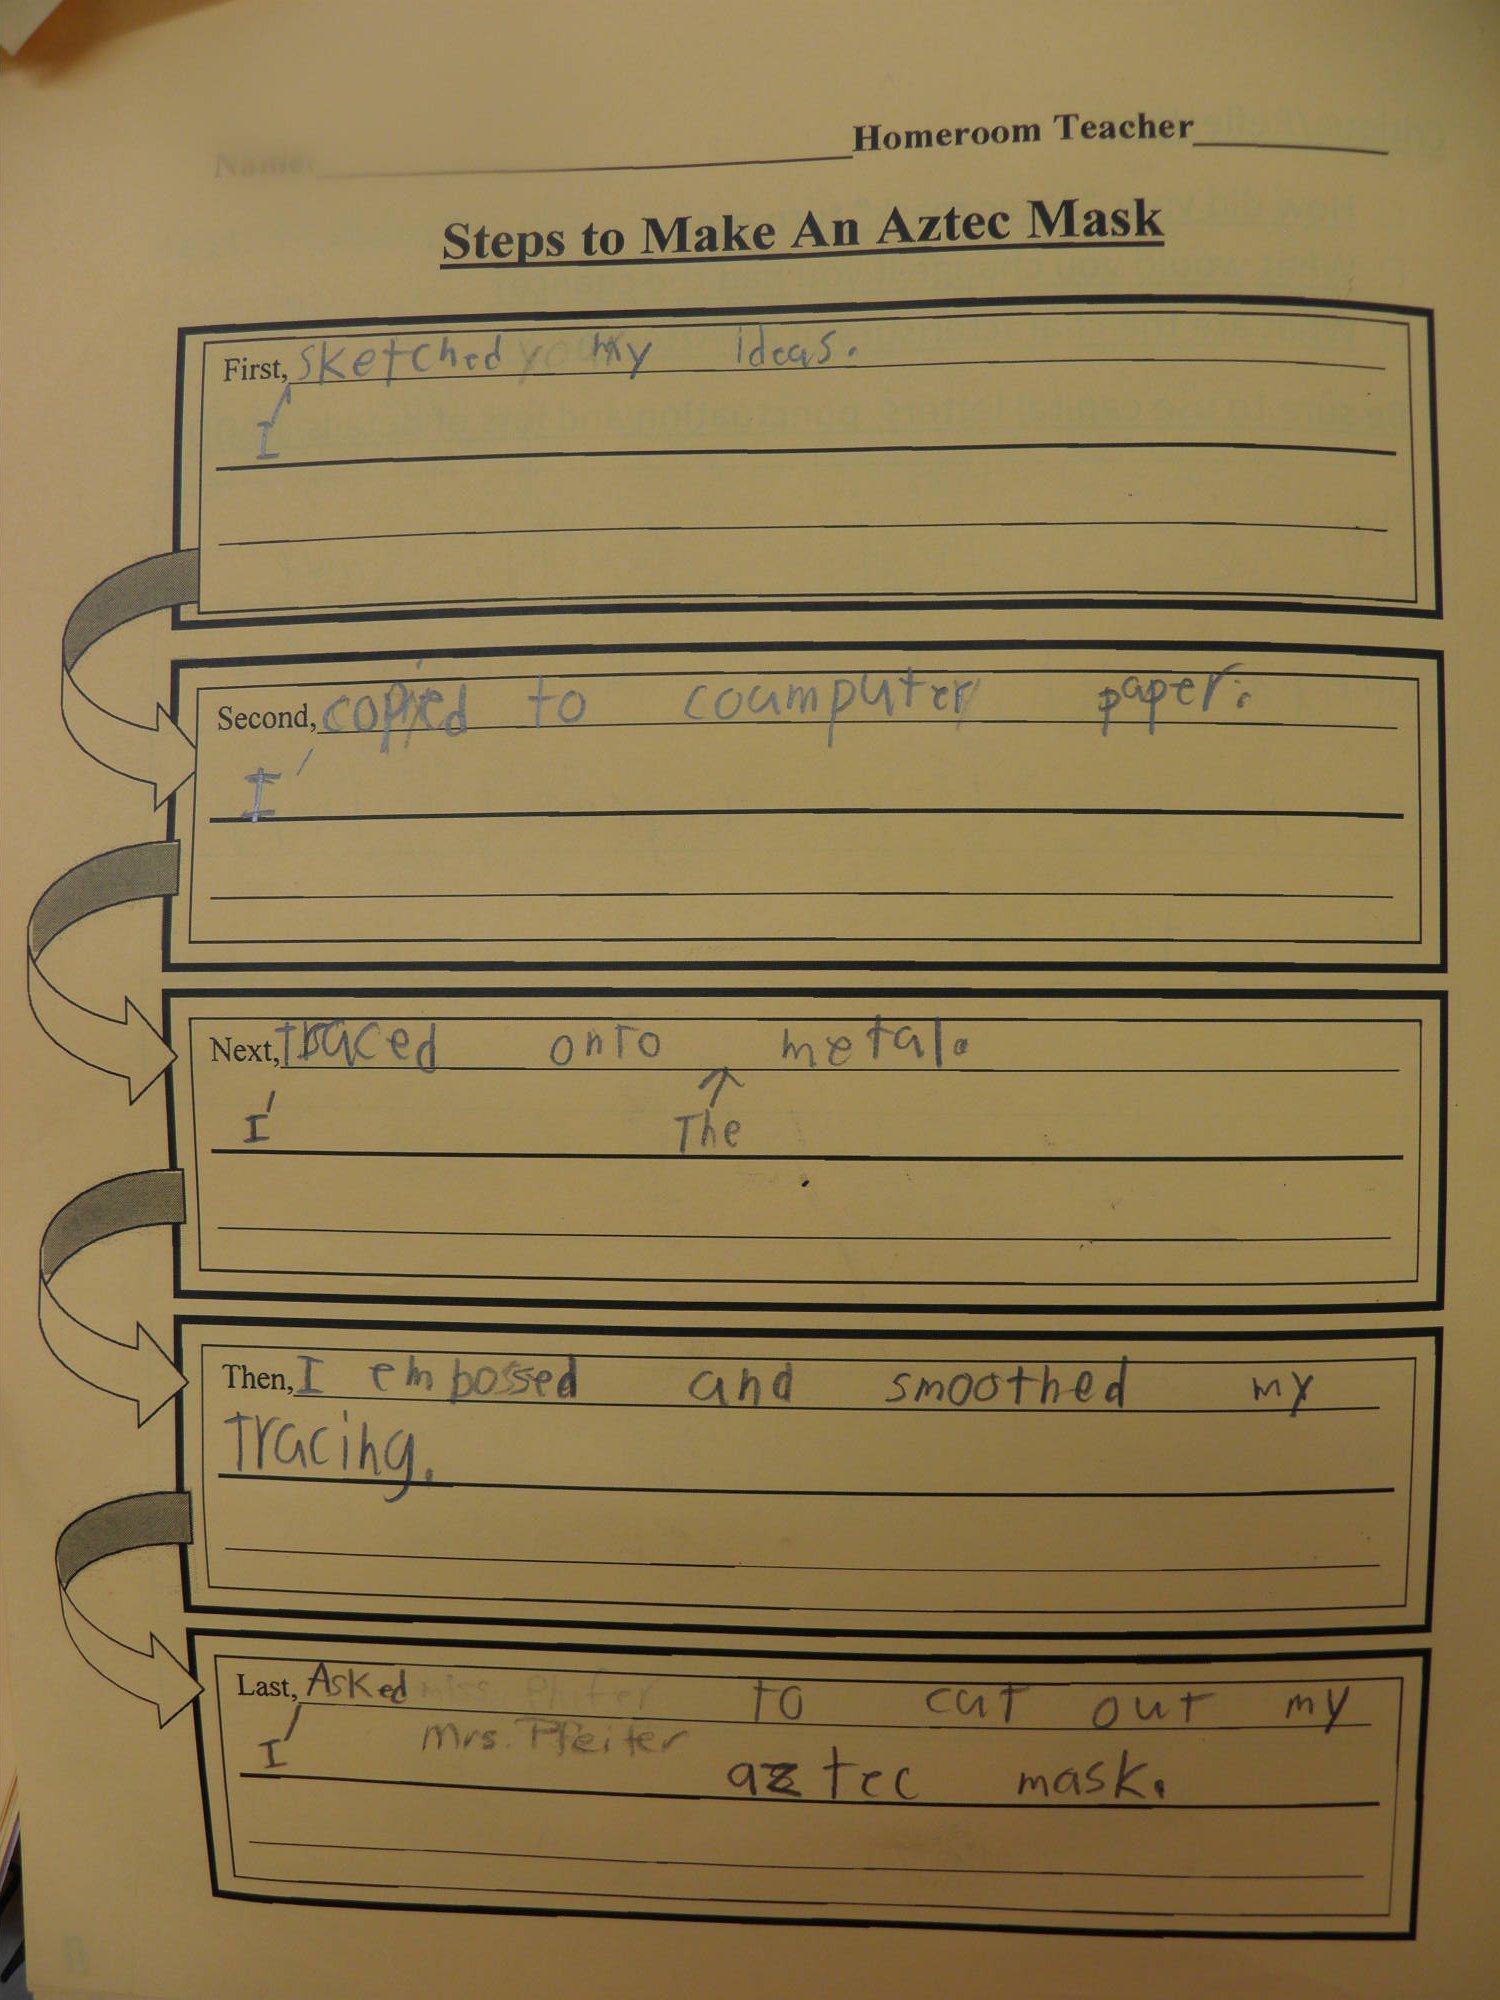 Name: Homeroom Teacher
Steps to Make An Aztec Mask
First, sketched my ideas.
I
Second, copied to coumputer paper.
I
Next, traced onto metal.
I The
Then, I embossed and smoothed my
tracing.
Last, Asked miss Phifer to cut out my
I Mrs. Pfeifer
aztec mask.